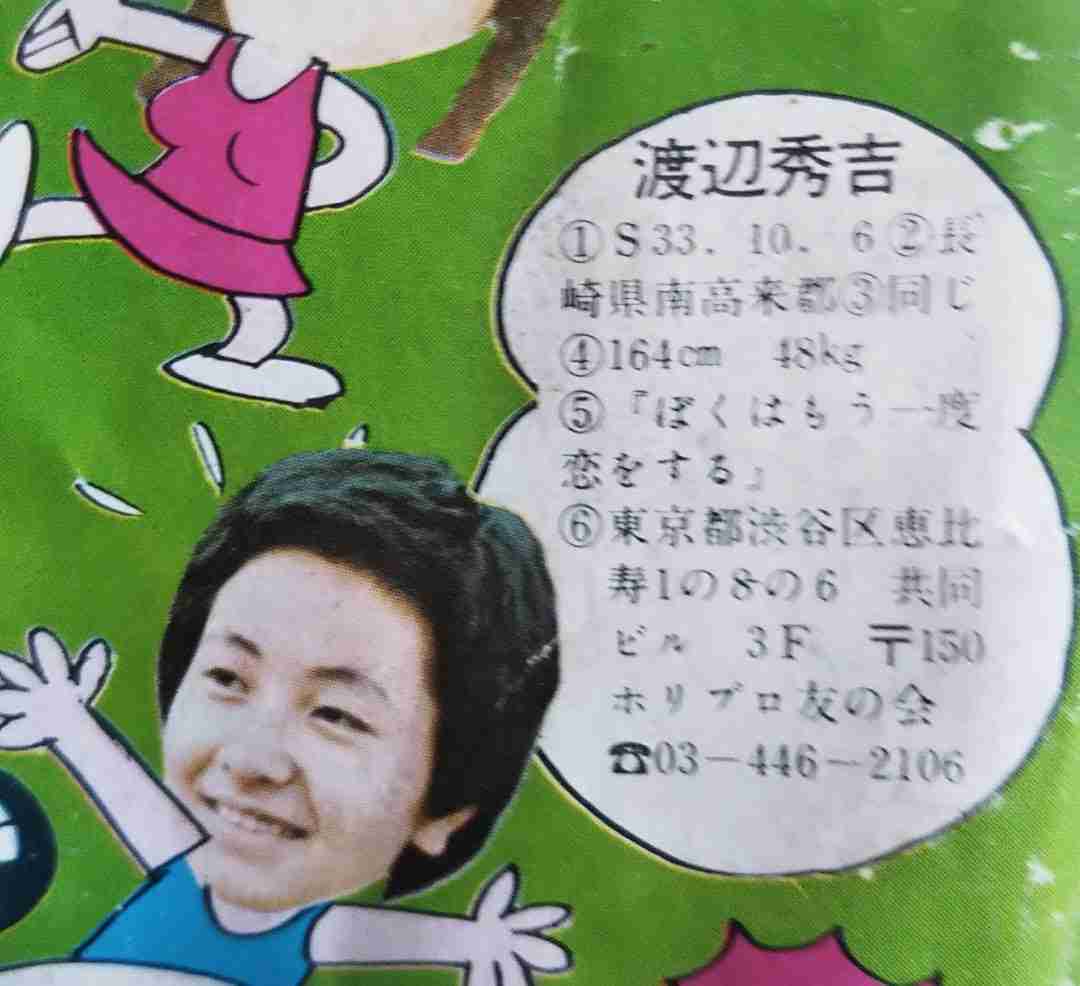 渡辺秀吉
①S33. 10. 6②長
崎県南高来郡③同じ
④164cm 48kg
⑤『ぼくはもう一度
恋をする』
⑥東京都渋谷区恵比
寿1の8の6 共同
ビル 3F 〒150
ホリプロ友の会
☎03−446−2106